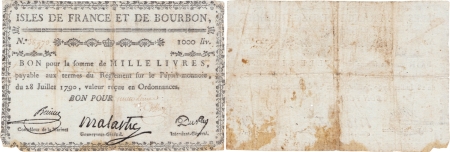 ISLES DE FRANCE ET DE BOURBON,
N.º 1000 liv.
BON pour la somme de MILLE LIVRES,
payable aux termes du Règlement sur le Papier-monnoie,
du 28 Juillet 1790, valeur reçue en Ordonnances.
BON POUR
Malartic
Contrôleur de la Marine. Gouverneur-Général. Intendant-Général.